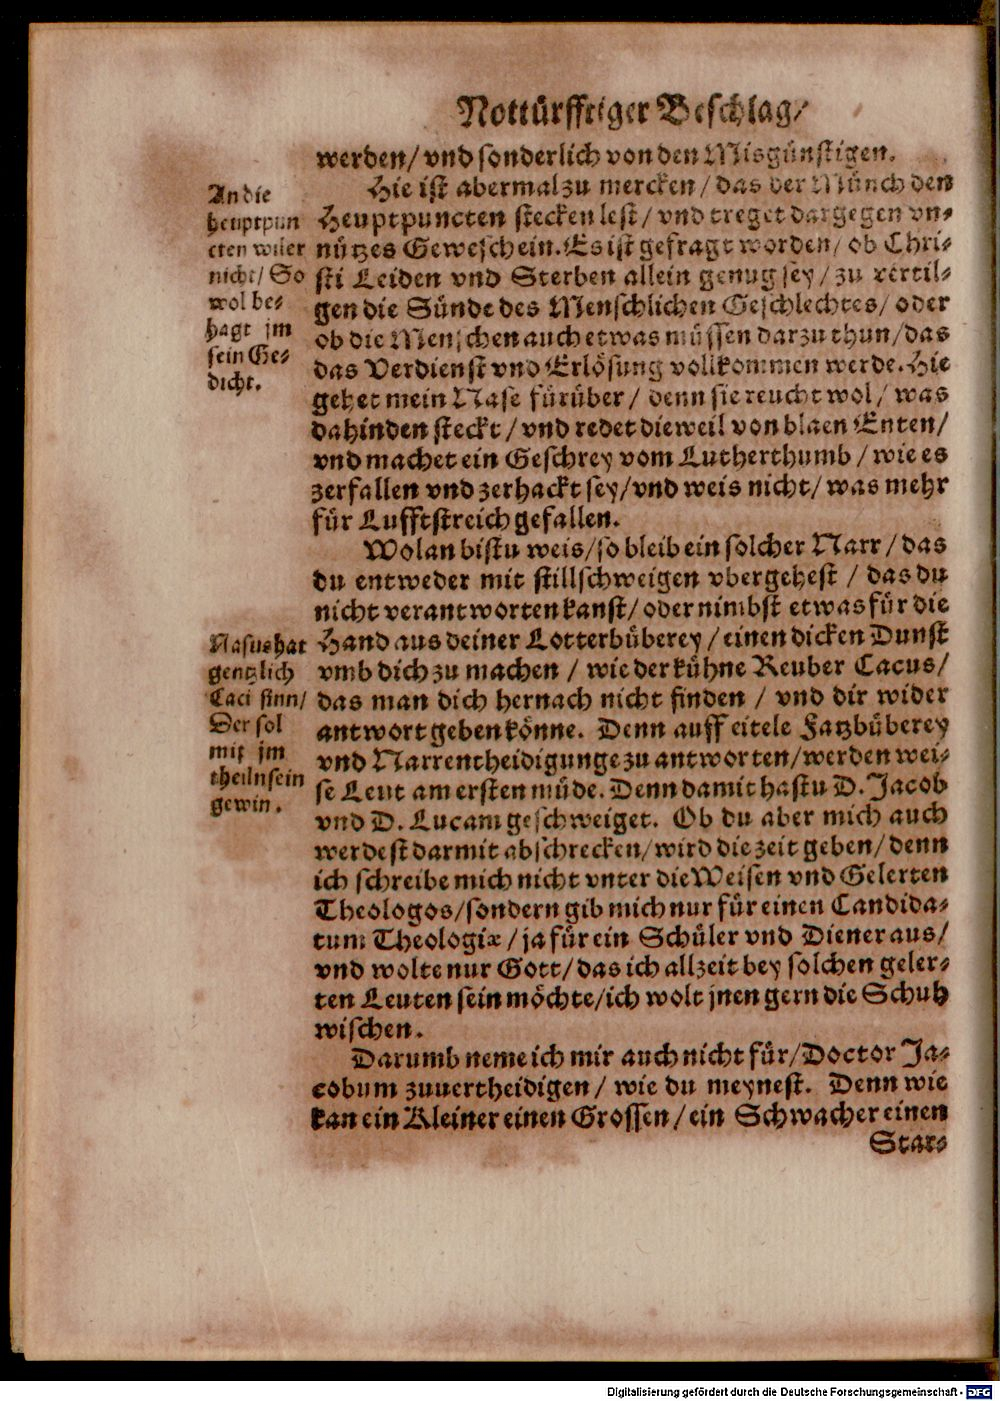 Nottürfftiger Beschlag/
werden/ vnd sonderlich von den Misgünstigen.
Hie ist abermal zu mercken/ das der Münch den
Heuptpuncten stecken lest/ vnd treget dargegen vn⸗
nützes Gewesch ein. Es ist gefragt worden/ ob Chri⸗
sti Leiden vnd Sterben allein genug sey/ zu vertil⸗
gen die Sünde des Menschlichen Geschlechtes/ oder
ob die Menschen auch etwas müssen darzu thun/ das
das Verdienst vnd Erlösung vollkommen werde. Hie
gehet mein Nase fürüber/ denn sie reucht wol/ was
dahinden steckt/ vnd redet dieweil von blaen Enten/
vnd machet ein Geschrey vom Lutherthumb/ wie es
zerfallen vnd zerhackt sey/ vnd weis nicht/ was mehr
für Lufftstreich gefallen.
An die
heuptpun
cten wil er
nicht/ So
wol be⸗
hagt jm
sein Ge⸗
dicht.
Wolan bistu weis/ so bleib ein solcher Narr/ das
du entweder mit stillschweigen vbergehest/ das du
nicht verantworten kanst/ oder nimbst etwas für die
Hand aus deiner Lotterbüberey/ einen dicken Dunst
vmb dich zu machen/ wie der kühne Reuber Cacus/
das man dich hernach nicht finden/ vnd dir wider
antwort geben könne. Denn auff eitele Fatzbüberey
vnd Narrentheidigunge zu antworten/ werden wei⸗
se Leut am ersten müde. Denn damit hastu D. Jacob
vnd D. Lucam geschweiget. Ob du aber mich auch
werdest darmit abschrecken/ wird die zeit geben/ denn
ich schreibe mich nicht vnter die Weisen vnd Gelerten
Theologos/ sondern gib mich nur für einen Candida⸗
tum Theologiæ/ ja für ein Schüler vnd Diener aus/
vnd wolte nur Gott/ das ich allzeit bey solchen geler⸗
ten Leuten sein möchte/ ich wolt jnen gern die Schuh
wischen.
Nasus hat
gentzlich
Caci sinn/
Der sol
mit jm
theiln sein
gewin.
Darumb neme ich mir auch nicht für/ Doctor Ja⸗
cobum zuuertheidigen/ wie du meynest. Denn wie
kan ein Kleiner einen Grossen/ ein Schwacher einen
Star⸗
Digitalisierung gefördert durch die Deutsche Forschungsgemeinschaft - DFG